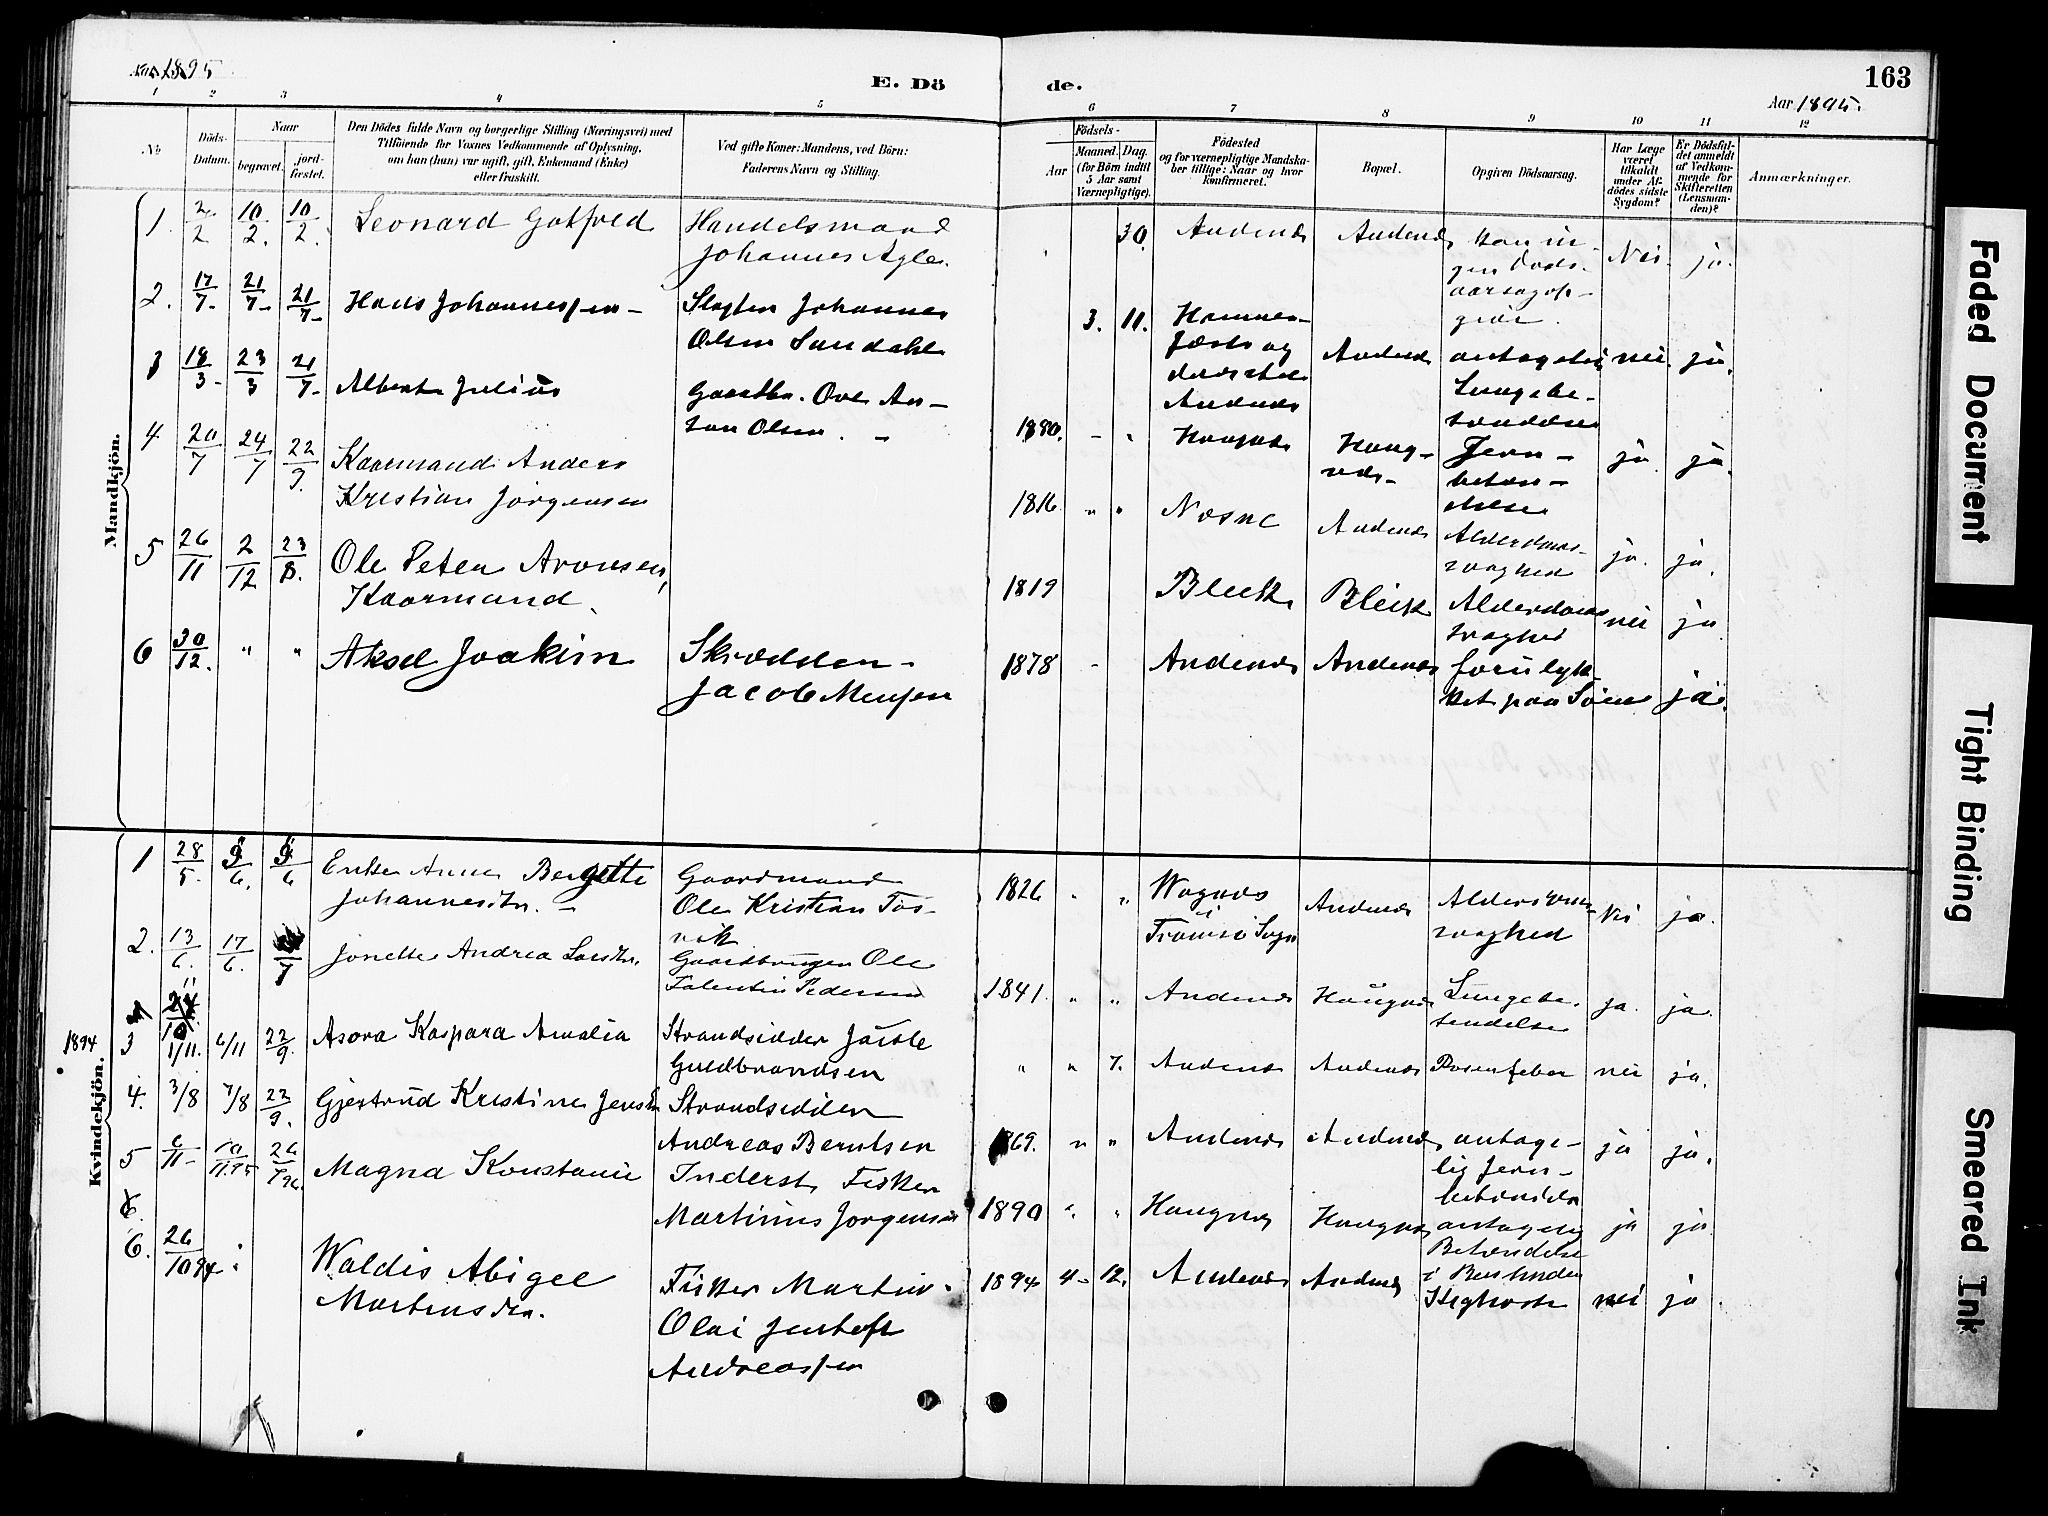 Aar 1895
E. Dö
de.
163
Aar 1895.
1 2 3 4 5 6 7 8 9 10 11 12
No
Döds-Datum.
Naar
begravet.
jord-fæstet.
Den Dödes fulde Navn og borgerlige Stilling (Næringsvei) med
Tilföiende for Voxnes Vedkommende af Oplysning,
om han (hun) var ugift, gift, Enkemand (Enke)
eller fraskilt.
Ved gifte Koner: Mandens, ved Börn:
Faderens Navn og Stilling.
Födsels-
Aar
Maaned.
Dag.
(for Börn indtil
5 Aar samt
Værnepligtige).
Födested
og for værnepligtige Mandska-
ber tillige: Naar og hvor
konfirmeret.
Bopæl.
Opgiven Dödsaarsag.
Har Læge
været
tilkaldt
under Af-
dödes sidste
Sygdom?
Er Dödsfal-
det anmeldt
af Vedkom-
mende for
Skifteretten
(Lensman-
den)?
Anmærkninger.
Mandkjön.
1. 2/2 10/2. 10/2. Leonard Gotfred
Handelsmand
Johannes Agle.
30. Andenes Andenes
kan in-
gen Døds-
aarsag op-
give.
Nei. ja.
2. 17/7- 21/7- 21/7-
Hans Johannessen -
Johannes
Olsen Sandahl
3. 11. Hammer-
og
Andenes
Andenes antagelig nei. ja.
Lungebe-
tændelse
3 18/3- 23/3 21/7-
Albert Julius
Gaardbr. Ove An-
ton Olsen. -
1880. - " Haugnes Haug-
nes-
Jern-
betæn-
delse
ja. ja.
4 20/7 24/7 22/9.
Kaarmand Anders
Kristian Jörgensen
1816 " " Nesne Andenes
Alderdoms-
svaghed
ja. ja.
5 26/11 2/12 23/8.
Ole Peter Aronsen,
Kaarmand.
1819 Bleik Bleik
Alderdoms
svaghed
nei ja
6 30/12. " "
Aksel Joakim
Skrædder-
Jacob Mensen
1878 - Andenes Andenes
forulyk-
ket paa Söen ja.
Kvindekjön.
1 28/5. 9/6. 9/6
Enke Anna Bergitte
Johannesdtr. -
Gaardmand
Ole Kristian Tos-
vik
1826 " " Wagnes
i
Tromsö Sogn
Andenes
Alderdoms-
svaghed
Nei ja.
2. 13/6. 17/6. /7
Jonette Andrea Larsdtr.
Gaardbruger Ole
Falentin Pedersen
1841. " " Andenes Haugnes
Lungebe-
tendelse
ja. ja.
1894
3 1/11. 6/11 22/9.
Asora Kaspara Amalia
Strandsidder Jacob
Guldbrandsen
" " 7. Andenes Andenes Rosenfeber nei ja.
4. 3/8 7/8 22/9.
Gjertrud Kristine Jensdtr
Strandsidder
Andreas Berntsen
1869. " " Andenes Andenes
antage-
lig Jern-
betændelse
ja ja.
5 6/11- 10/11.95 26/7 96.
Magna Konstance
Inderst Fisker
Martinus Jorgensen
1890 " " Haugnes Haugnes
antagelig
Betændelse
ja ja.
6.
6. 26/10 94
Waldis Abigel
Martinsdtr.
Fisker Martin
Olai Jentoft
Andreassen
1894 4- 12. Andenes Andenes
i
nei ja.
Faded Document
Tight Binding
Smeared Ink